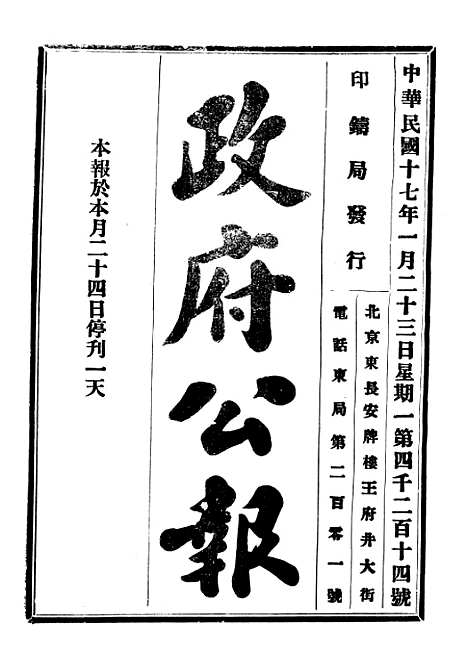 中華民國十七年一月二十三日星期一第四千二百十四號
印鑄局發行
北京東長安牌樓王府井大街
電話東局第二百零一號
政府公報
本報於本月二十四日停刊一天